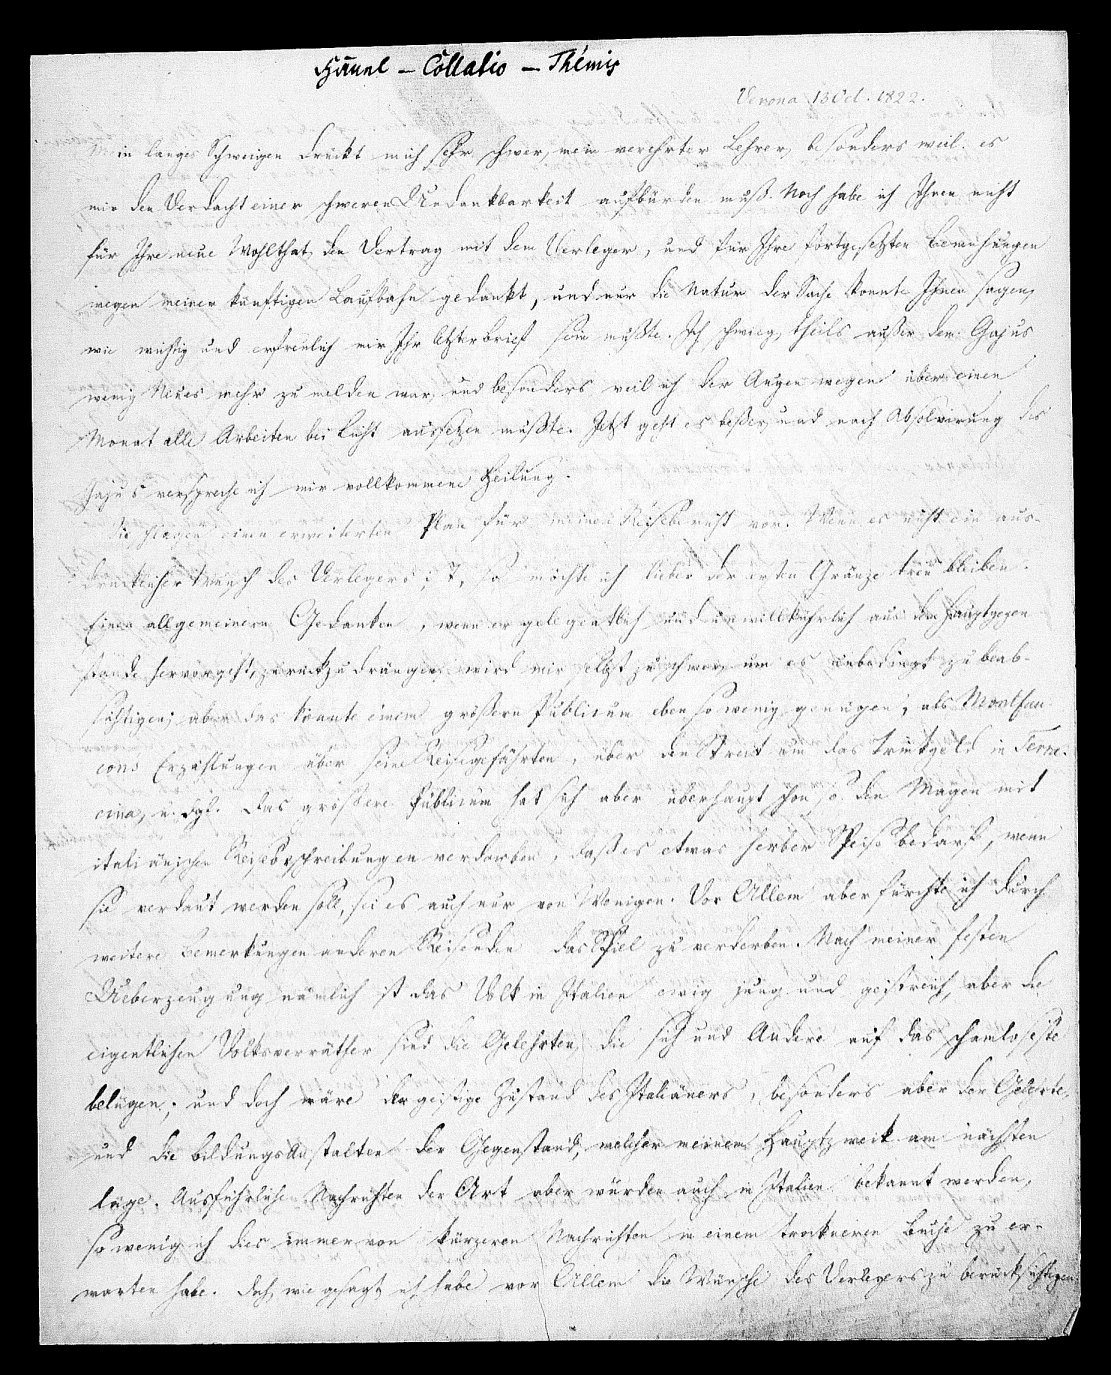 Hänel – Collatio – Thémis
Verona 13 Oct. 1822.
Mein langes Schweigen drückt mich sehr schwer, mein verehrter Lehrer, besonders weil es
mir den Verdacht einer schweren Undankbarkeit aufbürden muß. Noch habe ich Ihnen nicht
für Ihre neue Wohlthat, den Vertrag mit dem Verleger, und für Ihre fortgesetzten Bemühungen
wegen meiner künftigen Laufbahn gedankt, und nur die Natur der Sache konnte Ihnen sagen,
wie wichtig und erfreulich mir Ihr letzter Brief sein mußte. Ich schwieg, theils außer dem Gajus
wenig Neues mehr zu melden war, und besonders weil ich der Augen wegen über einen
Monat alle Arbeiten bei Licht aussetzen mußte. Jetzt geht es beßer, und nach Absolvirung des
Gajus verspreche ich mir vollkommene Heilung.
Sie schlagen einen erweiterten Plan für meinen Reisebericht vor. Wenn es nicht ein aus-
drücklicher Wunsch des Verlegers ist, so möchte ich lieber der ersten Gränze treu bleiben.
Einen allgemeinern Gedanken, wenn er gelegentlich und unwillkührlich aus dem Hauptgegen-
stande hervorgeht, zurückzudrängen wird mir selbst zu schwer um es unbedingt zu beab-
sichtigen; aber das könnte einem größern Publicum eben so wenig genügen, als Montfau-
cons Erzählungen über seine Reisegefährten, über den Streit um das Trinkgeld in Terra-
cina, u. dgl. Das größere Publicum hat sich aber überhaupt schon so den Magen mit
italiänischen Reisebeschreibungen verdorben, daß es etwas herber Speise bedarf, wenn
sie verdaut werden soll, sei es auch nur von Wenigen. Vor Allem aber fürchte ich durch
weitere Bemerkungen anderen Reisenden das Spiel zu verderben. Nach meiner festen
Ueberzeugung nämlich ist das Volk in Italien ewig jung und geistreich, aber die
eigentlichen Volksverräther sind die Gelehrten, die sich und Andere auf das schamloseste
belügen; und doch wäre der geistige Zustand des Italiäners, besonders aber der Gelehrten
und die Bildungsanstalten der Gegenstand, welcher meinem Hauptzweck am nächsten
läge. Ausführliche Nachrichten der Art aber würden auch in Italien bekannt werden,
so wenig ich dies immer von kürzeren Nachrichten in einem trockneren Buche zu er-
warten habe. Doch, wie gesagt, ich habe vor Allem die Wünsche des Verlegers zu berücksichtigen